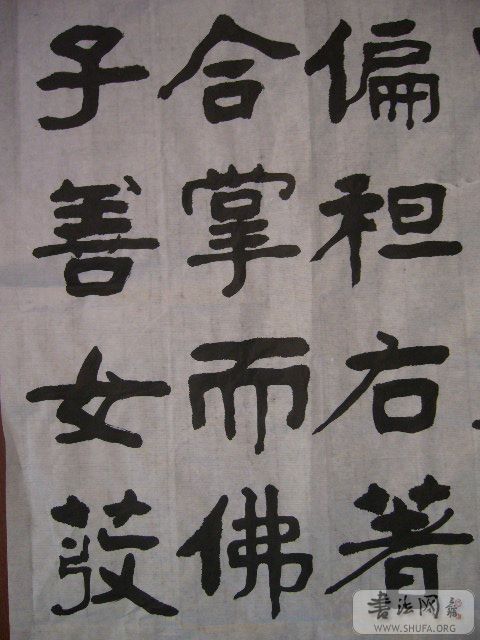 偏袒右著
合掌而佛
子善女𦱤
书法网
WWW.SHUFA.ORG